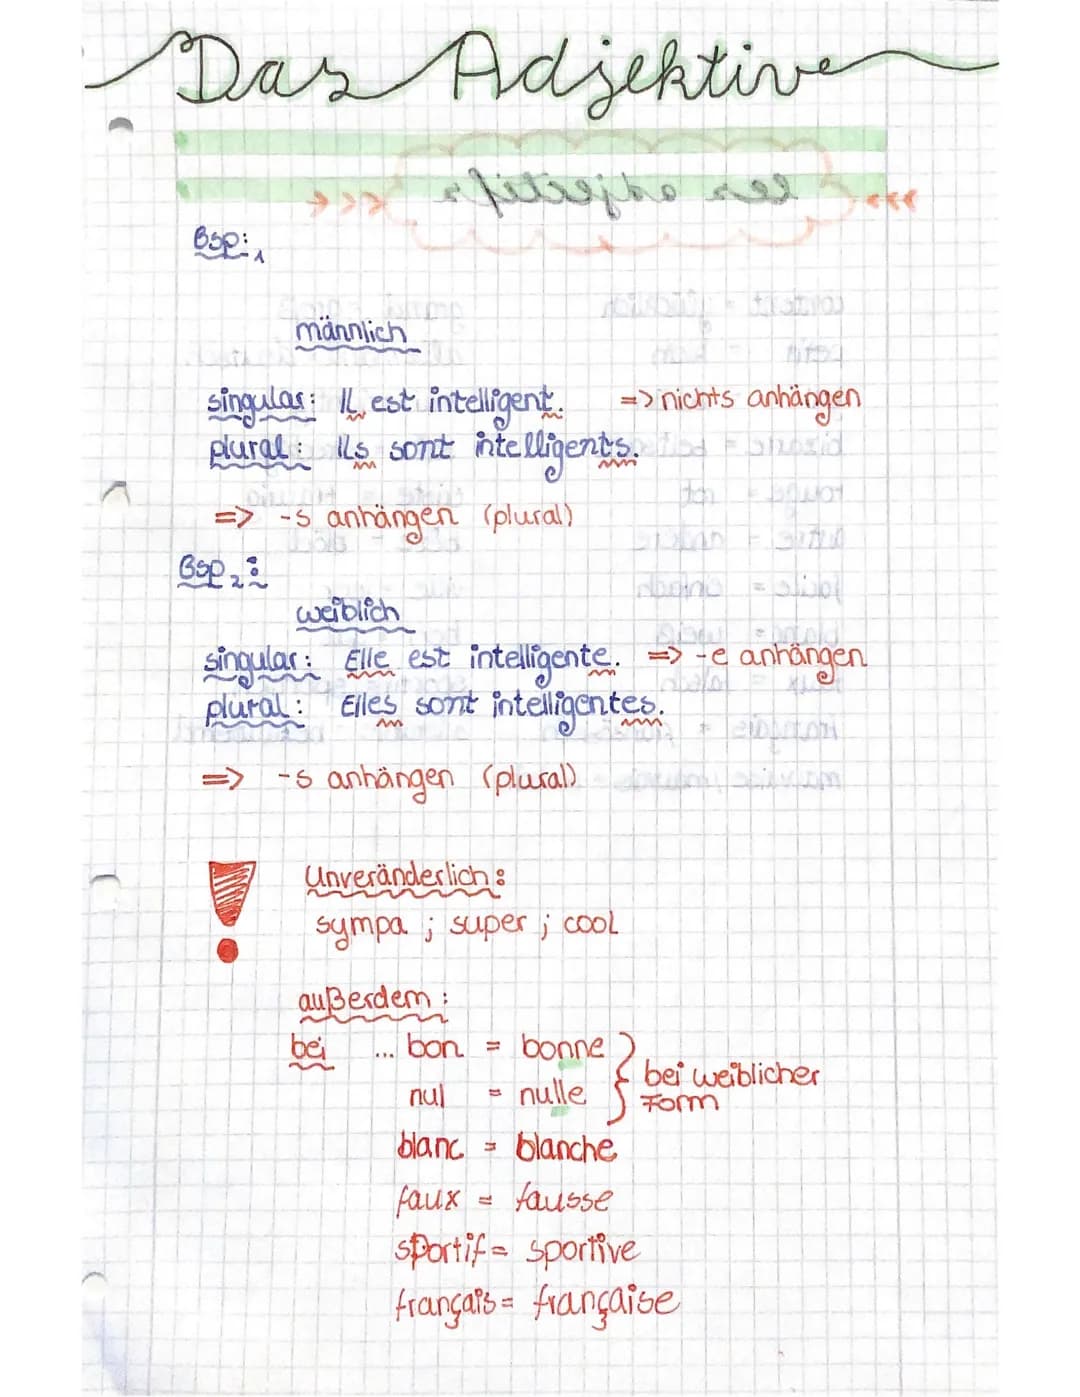 Das Adjektive
les adjectifs
Bsp:1
männlich
singular: Il est intelligent. => nichts anhängen
plural: Ils sont intelligents.
=> -s anhängen (plural)
Bsp2:
weiblich
singular: Elle est intelligente. => -e anhängen
plural: Elles sont intelligentes.
=> -s anhängen (plural)
Unveränderlich:
sympa ; super ; cool
außerdem:
bei ... bon = bonne
nul = nulle
} bei weiblicher
Form
blanc = blanche
faux = fausse
sportif = sportive
français = française